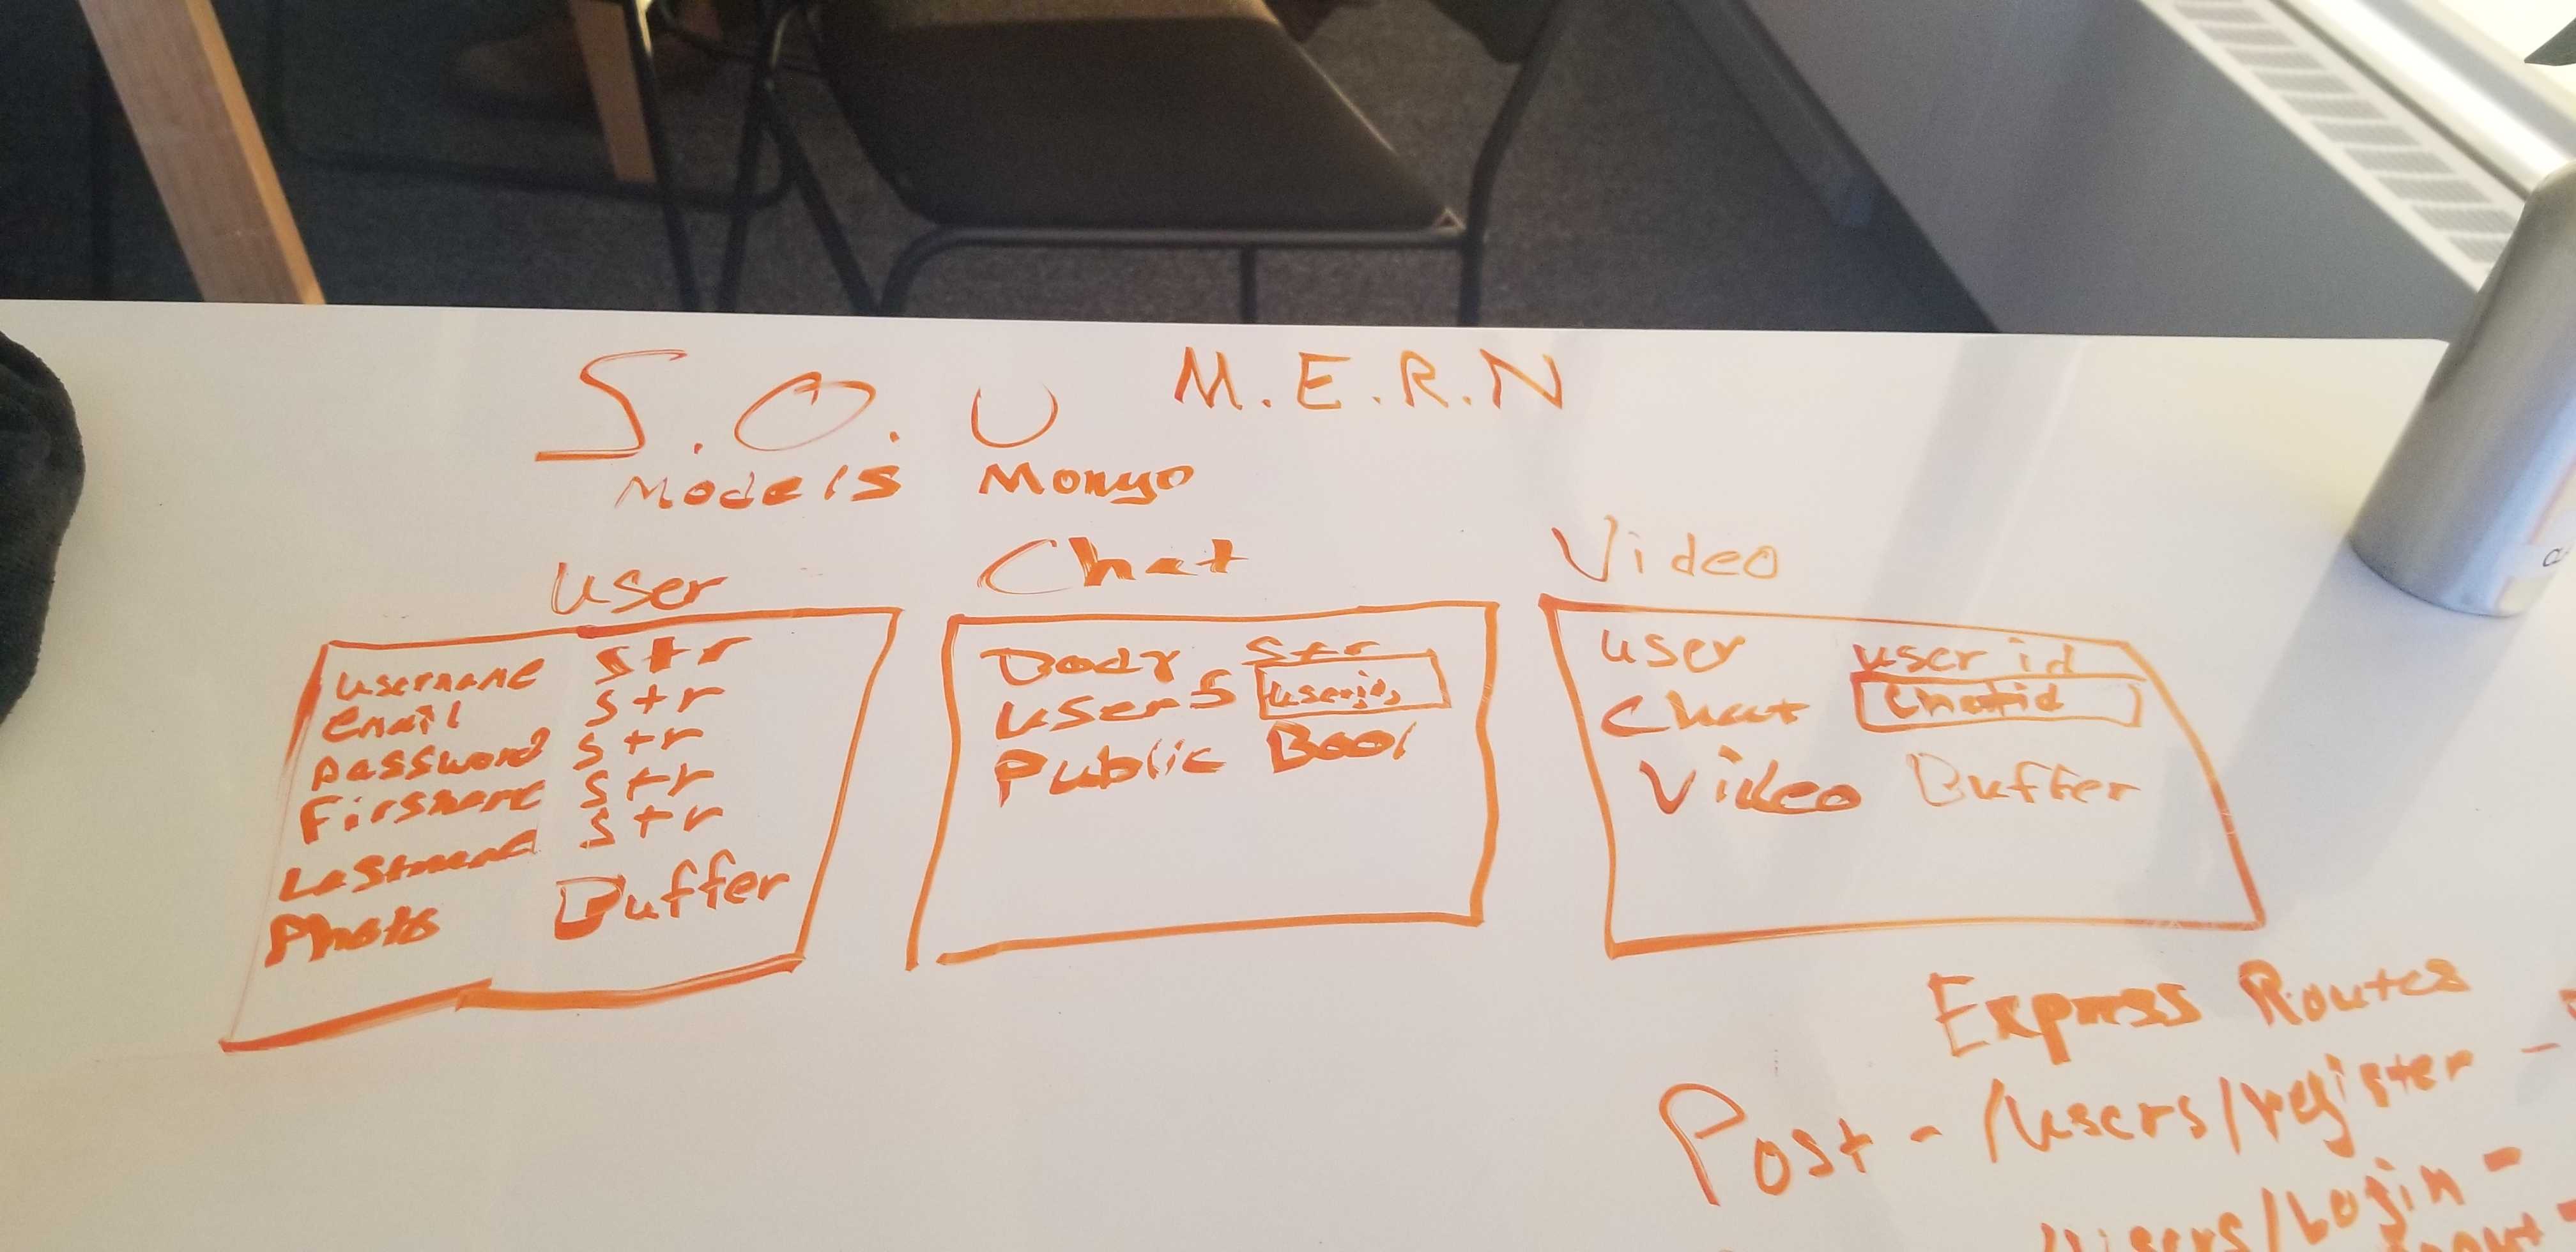 S.O.U M.E.R.N
Models Mongo
User
username str
email str
password str
Firsname str
Lastname str
Photo Buffer
Chat
Body str
users userid
Public Bool
Video
user user id
Chat Chatid
Video Buffer
Express Routes
Post - /users/register -
/users/Login -